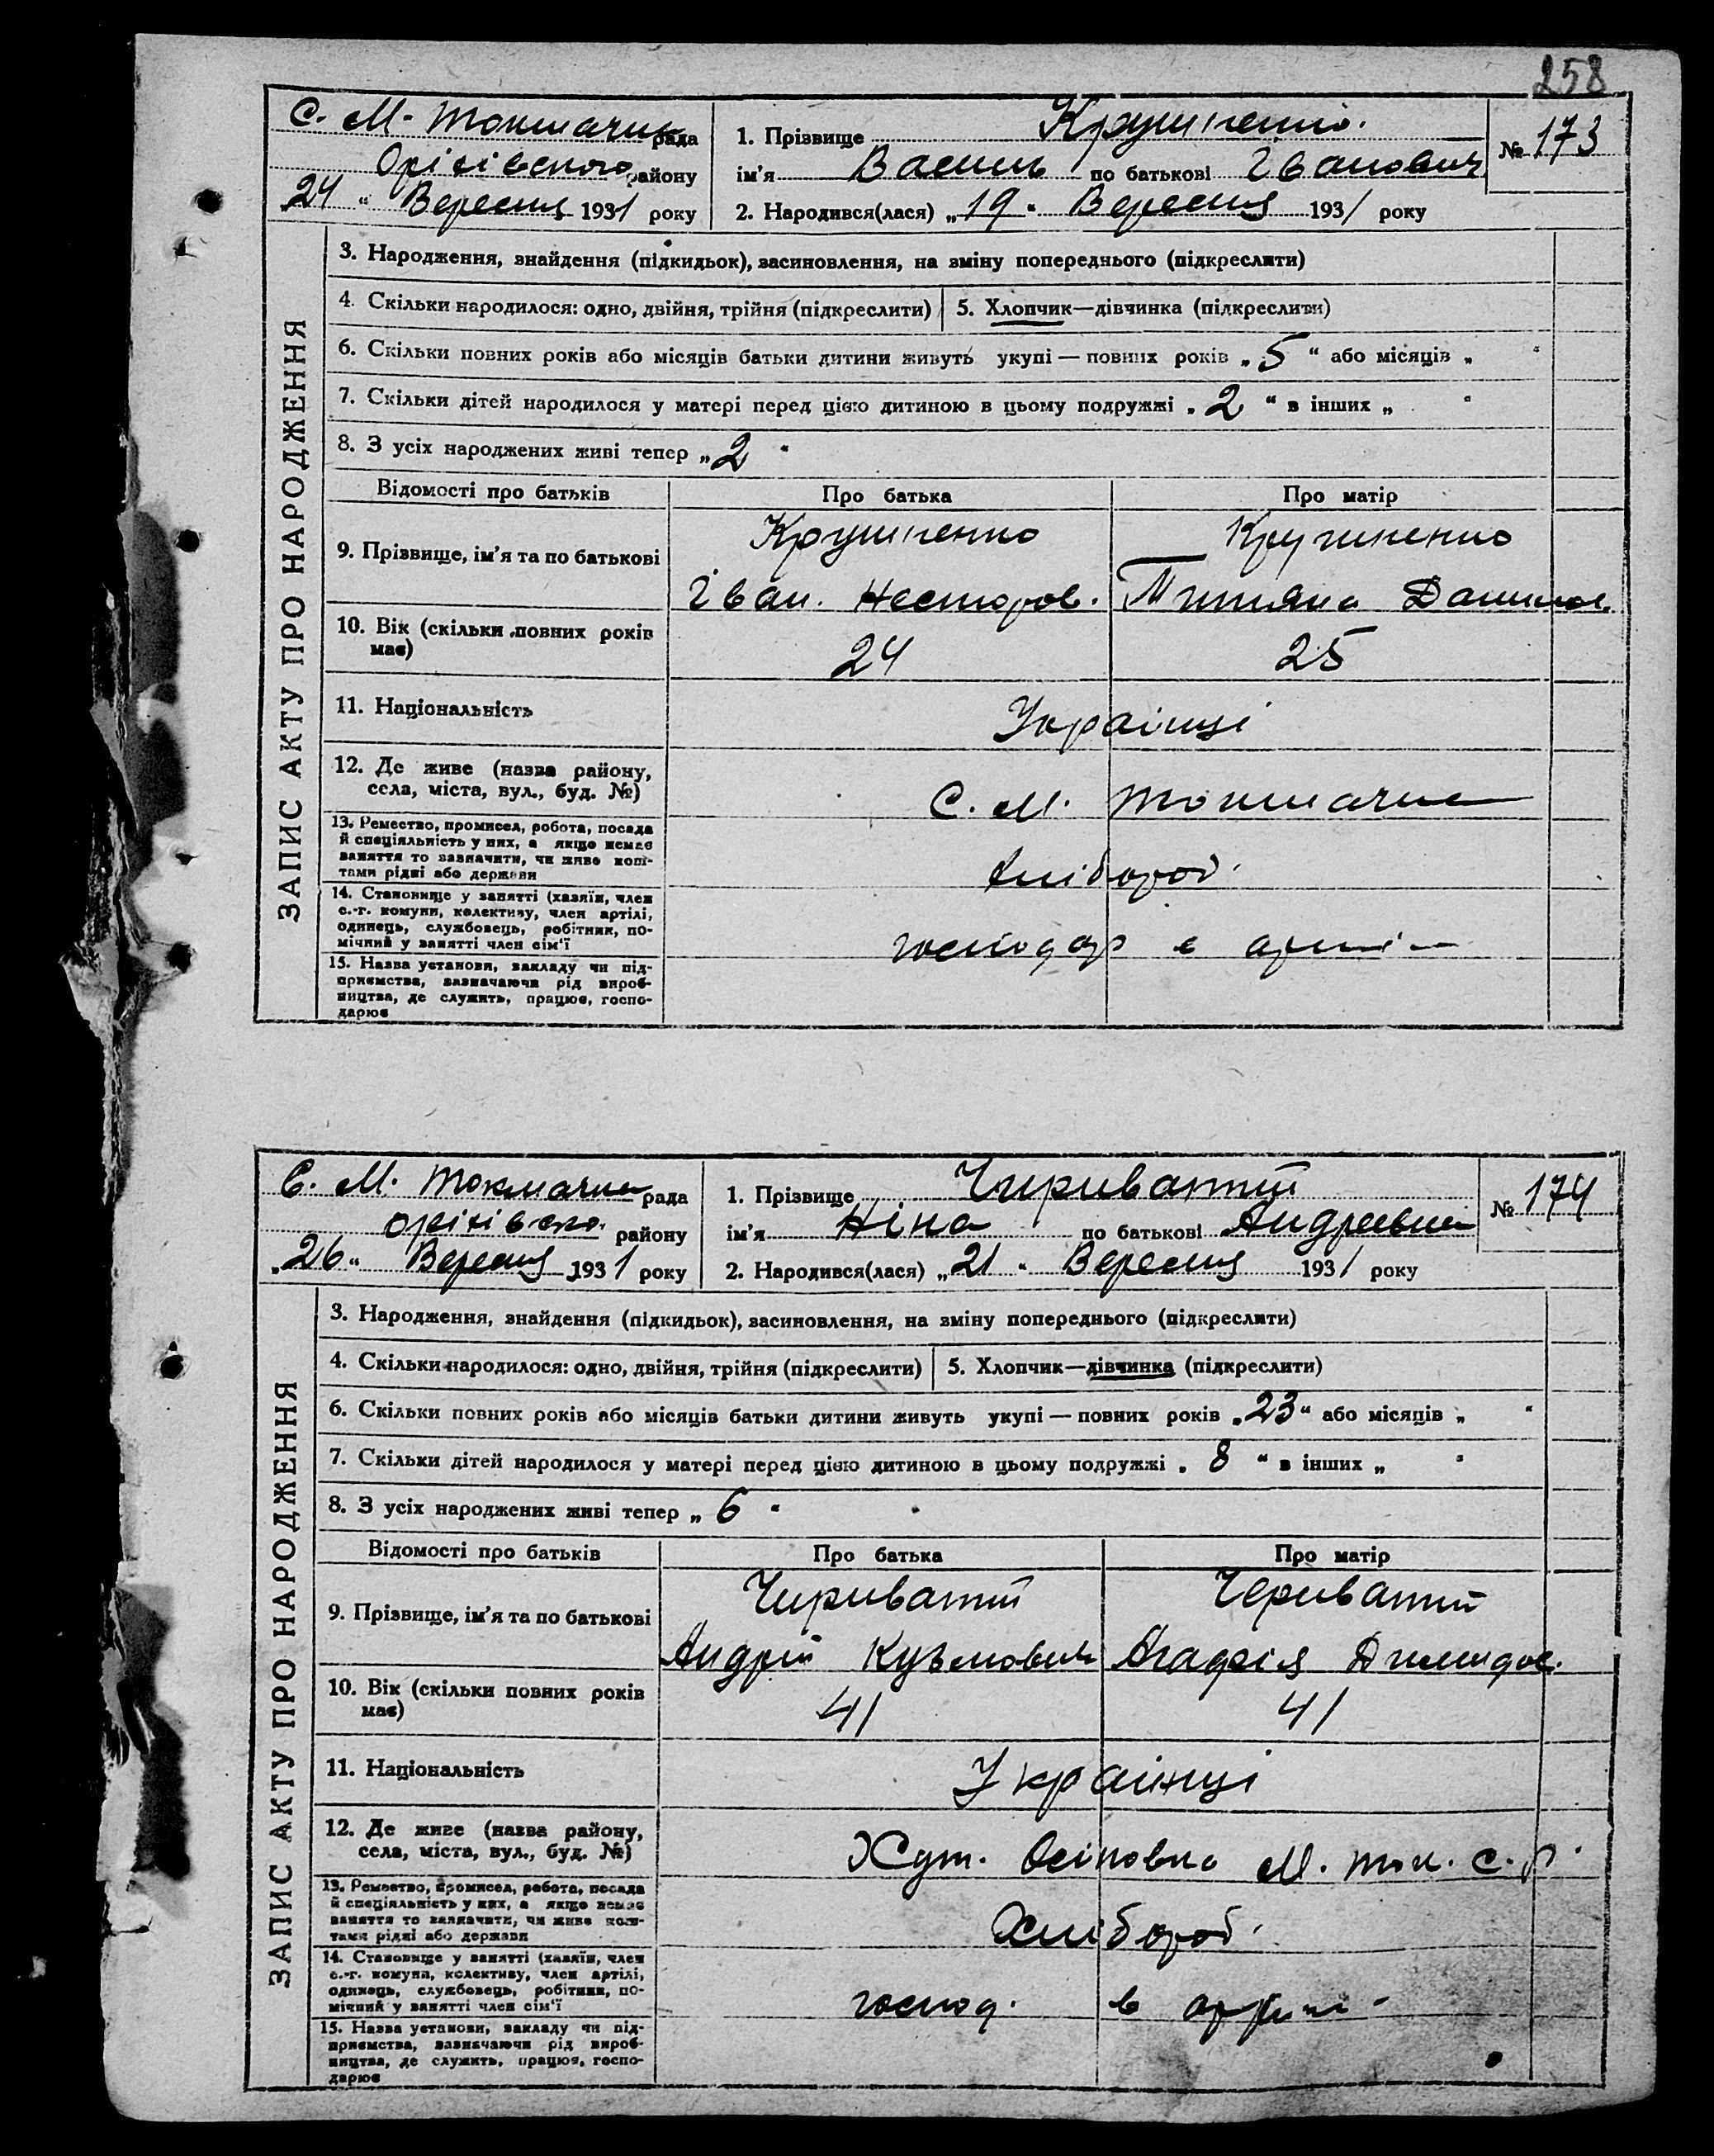 258
С. М. Токмачик рада
Оріхівського району
24 " Вересня 1931 року
1. Прізвище
ім'я Василь по батькові Іванович
2. Народився(лася) „19" Вересня 1931 року
№ 173
ЗАПИС АКТУ ПРО НАРОДЖЕННЯ
3. Народження, знайдення (підкидьок), засиновлення, на зміну попереднього (підкреслити)
4. Скільки народилося: одно, двійня, трійня (підкреслити)
5. Хлопчик—дівчинка (підкреслити)
6. Скільки повних років або місяців батьки дитини живуть укупі — повних років „5" або місяців „ "
7. Скільки дітей народилося у матері перед цією дитиною в цьому подружжі „2" в інших „ "
8. З усіх народжених живі тепер „2"
Відомості про батьків
Про батька
Про матір
9. Прізвище, ім'я та по батькові
Іван. Несторов.
10. Вік (скільки повних років має)
24
25
11. Національність
Українці
12. Де живе (назва району,
села, міста, вул., буд. №)
С. М. Токмачка
13. Ремество, промисел, робота, посада
й спеціяльність у них, а якщо немає
заняття то зазначити, чи живе кош-
тами рідні або держави
Хлібороб
14. Становище у занятті (хазяїн, член
с.-г. комуни, колективу, член артілі,
одинець, службовець, робітник, по-
мічний у занятті член сім'ї
господар в артілі
15. Назва установи, закладу чи під-
приємства, зазначаючи рід вироб-
ництва, де служить, працює, госпо-
дарює
С. М. Токмачка рада
Оріхівсько. району
„26" Вересня 1931 року
1. Прізвище Чириватий
ім'я Ніна по батькові Андреевна
2. Народився(лася) „21" Вересня 1931 року
№ 174
ЗАПИС АКТУ ПРО НАРОДЖЕННЯ
3. Народження, знайдення (підкидьок), засиновлення, на зміну попереднього (підкреслити)
4. Скільки народилося: одно, двійня, трійня (підкреслити)
5. Хлопчик—дівчинка (підкреслити)
6. Скільки повних років або місяців батьки дитини живуть укупі — повних років „23" або місяців „ "
7. Скільки дітей народилося у матері перед цією дитиною в цьому подружжі „8" в інших „ "
8. З усіх народжених живі тепер „6"
Відомості про батьків
Про батька
Про матір
9. Прізвище, ім'я та по батькові
Чириватий
Чериватий
Андрій Кузмович
10. Вік (скільки повних років має)
41
41
11. Національність
Українці
12. Де живе (назва району,
села, міста, вул., буд. №)
Хут. Осіповка М. Ток. с. р.
13. Ремество, промисел, робота, посада
й спеціяльність у них, а якщо немає
заняття то зазначити, чи живе кош-
тами рідні або держави
Хлібороб
14. Становище у занятті (хазяїн, член
с.-г. комуни, колективу, член артілі,
одинець, службовець, робітник, по-
мічний у занятті член сім'ї
господ. в артілі
15. Назва установи, закладу чи під-
приємства, зазначаючи рід вироб-
ництва, де служить, працює, госпо-
дарює